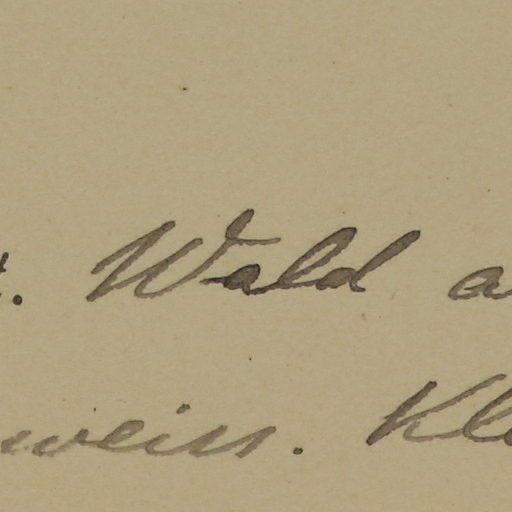 . Wald a
weiss. Kl